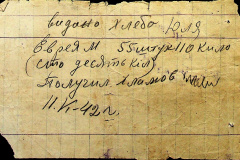 видано хлеба для
Евреям 55 штук 110 кило
(сто десять кіл)
Получил Хламов
11.X-42 г.